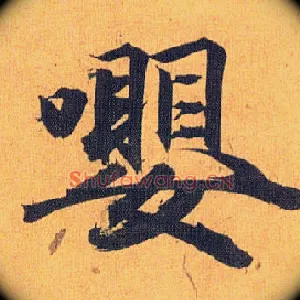 嚶
Shufawang.cn